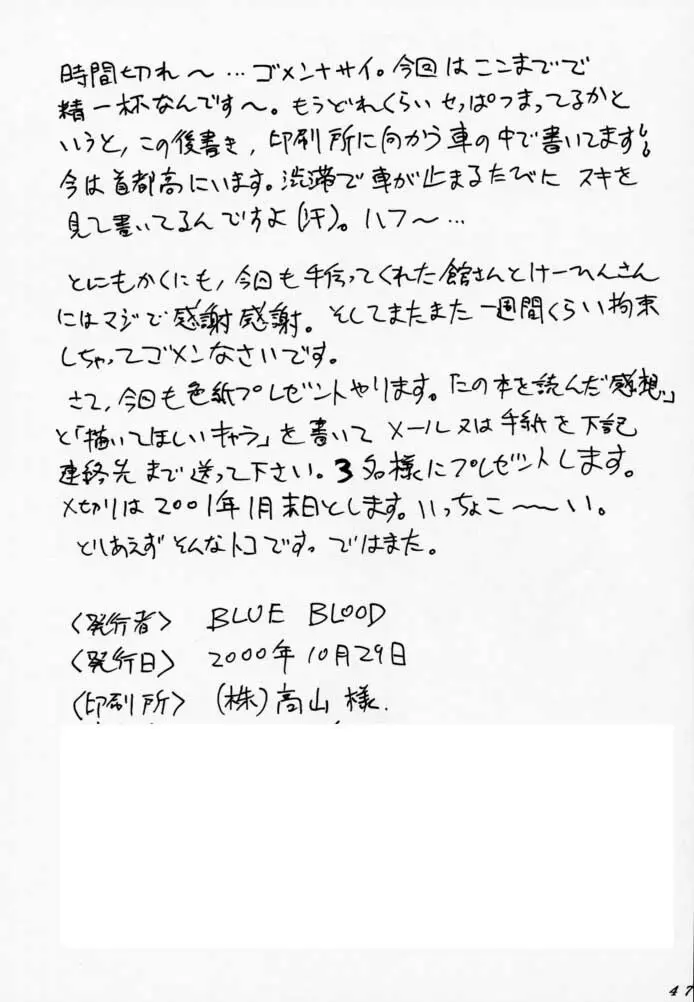 時間切れ～…ゴメンナサイ。今回はここまでで
精一杯なんです～。もうどれくらいセッぱつまってるかと
いうと,この後書き,印刷所に向かう車の中で書いてます!。
今は首都高にいます。渋滞で車が止まるたびに スキを
見て書いてるんですよ(汗)。ハフ～…
とにもかくにも,今回も手伝ってくれた館さんとけーひんさん
にはマジで感謝感謝。そしてまたまた一週間くらい拘束
しちゃってゴメンなさいです。
さて,今回も色紙プレゼントやります。「この本を読んだ感想」
と「描いてほしいキャラ」を書いて メール又は手紙を下記
連絡先まで送って下さい。3名様にプレゼントします。
〆切りは2001年1月末日とします。いっちょこ～い。
とりあえずそんなトコですっ ではまた。
〈発行者〉 BLUE BLOOD
〈発行日〉 2000年10月29日
〈印刷所〉 (株)高山様.
47